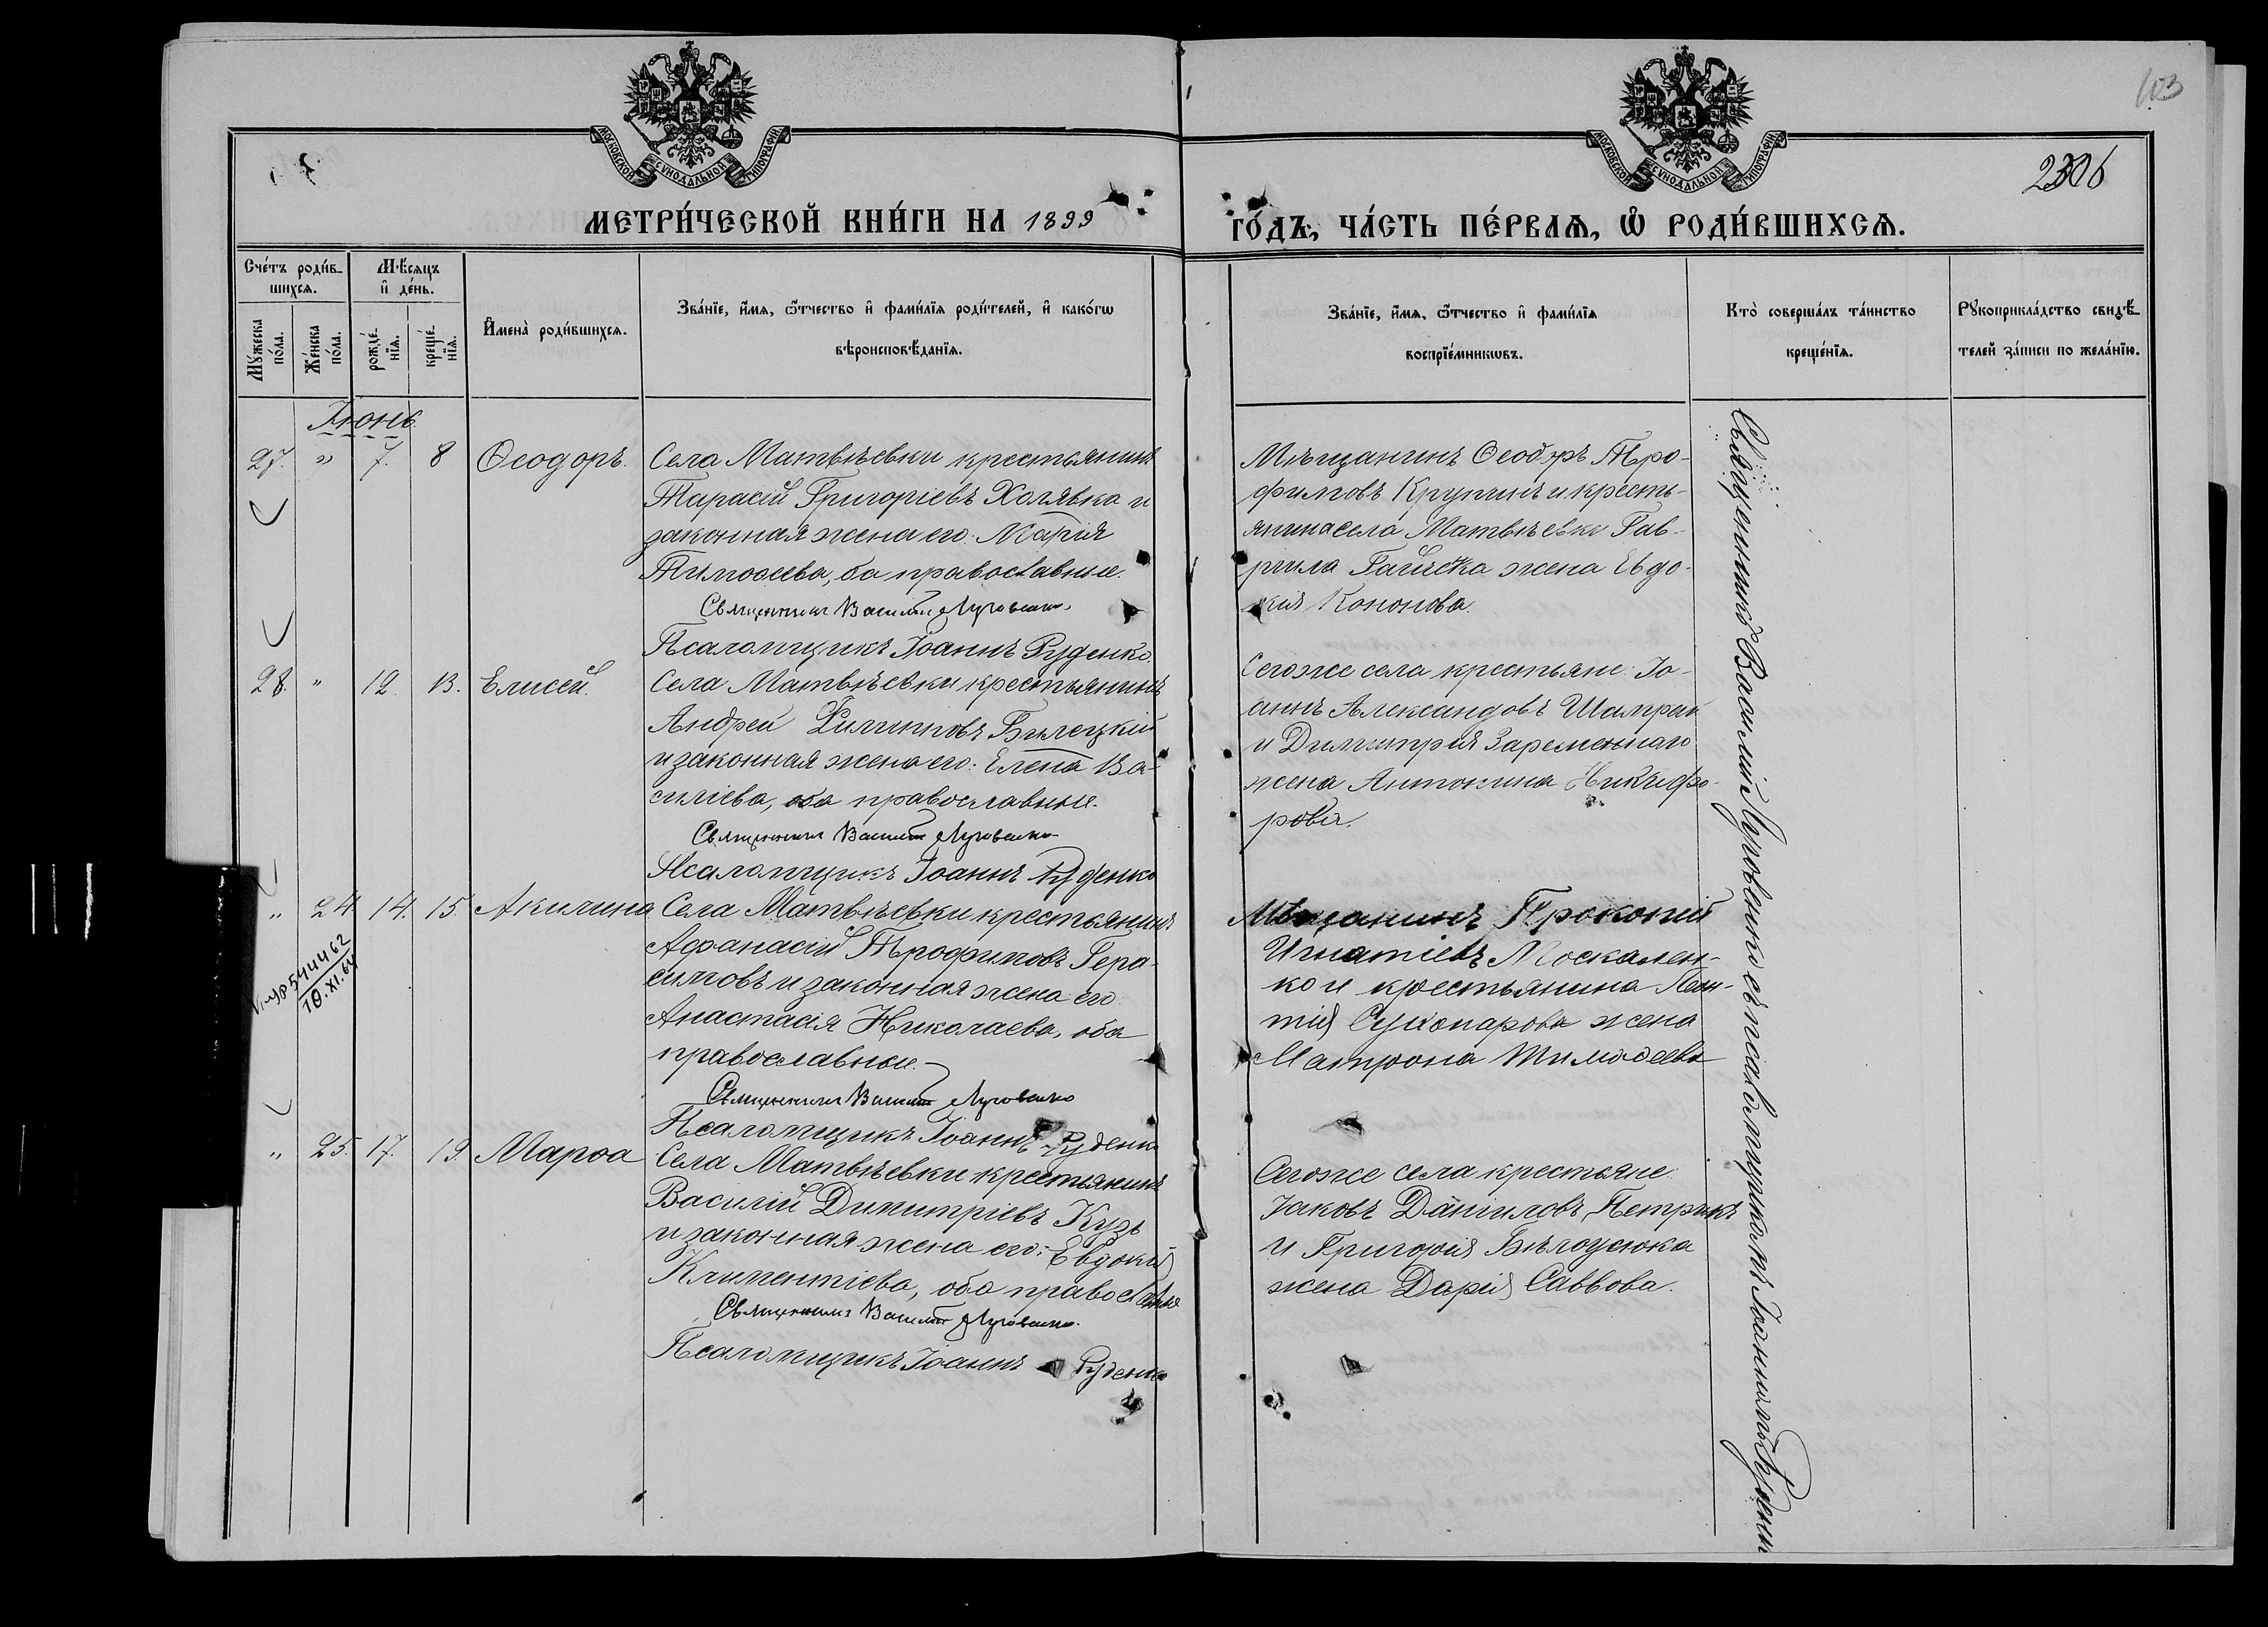 103
МОСКОВСКОЙ СѴНОДАЛЬНОЙ ТИПОГРАФІИ
МОСКОВСКОЙ СѴНОДАЛЬНОЙ ТИПОГРАФІИ
2306
МЕТРИ́ЧЕСКОЙ КНИ́ГИ НА 1899
ГО́ДЪ, ЧА́СТЬ ПЕ́РВАѦ, Ѡ҆ РОДИ́ВШИХСѦ.
Сче́тъ роди́в-
шихсѧ.
Мѣ́сѧцъ
и҆ де́нь.
Мꙋ́жеска
по́ла.
Же́нска
по́ла.
рожде́-
нїѧ.
креще́-
нїѧ.
И҆мена̀ роди́вшихсѧ.
Зва́нїе, и҆́мѧ, ѻ҆́тчество и҆ фами́лїѧ роди́телей, и҆ како́гѡ
вѣроисповѣ́данїѧ.
Зва́нїе, и҆́мѧ, ѻ҆́тчество и҆ фами́лїѧ
воспрїе́мникѡвъ.
Кто̀ соверша́лъ та́инство
креще́нїѧ.
Рꙋкоприкла́дство свидѣ́-
телей за́писи по жела́нїю.
Іюнь.
27. " 7. 8 Ѳеодоръ.
Села Матвѣевки крестьянинъ
Тарасій Григоріевъ Холявка и
законная жена его: Марія
Тимоѳеева, оба православные.
Священникъ Василій Луговенко
Псаломщикъ Іоаннъ Руденко.
Мѣщанинъ Ѳеодоръ Тро-
фимовъ Крупчинъ и кресть-
янина села Матвѣевки Гав-
ріила жена Евдо-
кія Кононова.
28. " 12. 13. Елисей.
Села Матвѣевки крестьянинъ
Андрей Филипповъ Билецкій
и законная жена его: Елена Ва-
силіева, оба православные.
Священникъ Василій Луговенко
Псаломщикъ Іоаннъ Руденко
Сегоже села крестьяне: Іо-
аннъ Александовъ Шамрай
и Димитрія Заременнаго
жена Антонина Никифо-
рова.
" 24 14. 15. Акилина
5744462
10.XI.64
Села Матвѣевки крестьянинъ
Афанасій Трофимовъ Гера-
симовъ и законная жена его
Анастасія Николаева, оба
православные.
Священникъ Василій Луговенко
Псаломщикъ Іоаннъ Руденко
Мѣщанинъ Прокопій
Игнатіевъ Москален-
ко и крестьянина Пан-
тія Сухопарова жена
Матрона Тимоѳеева
" 25. 17. 19. Марѳа
Села Матвѣевки крестьянинъ
Василій Димитріевъ Кузь
и законная жена его: Евдокія
Климентіева, оба православные
Священникъ Василій Луговенко.
Псаломщикъ Іоаннъ Руденко
Сегоже села крестьяне:
Іаковъ Даниловъ Петрикъ
и Григорія Бѣлоусюка
жена Дарія Саввова.
Священникъ Василій Луговенко съ псаломщикомъ Іоанномъ Руденко